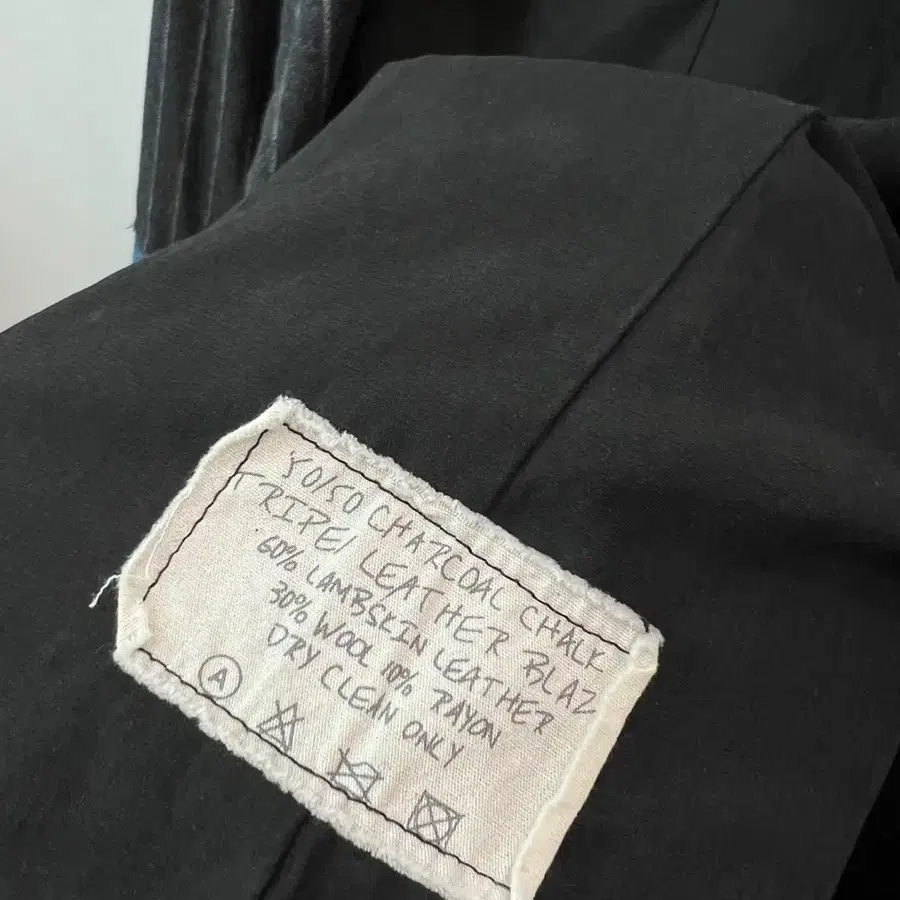 50/50 CHARCOAL CHALK
TRIPE/ LEATHER BLAZ
60% LAMBSKIN LEATHER
30% WOOL 10% RAYON
DRY CLEAN ONLY
A